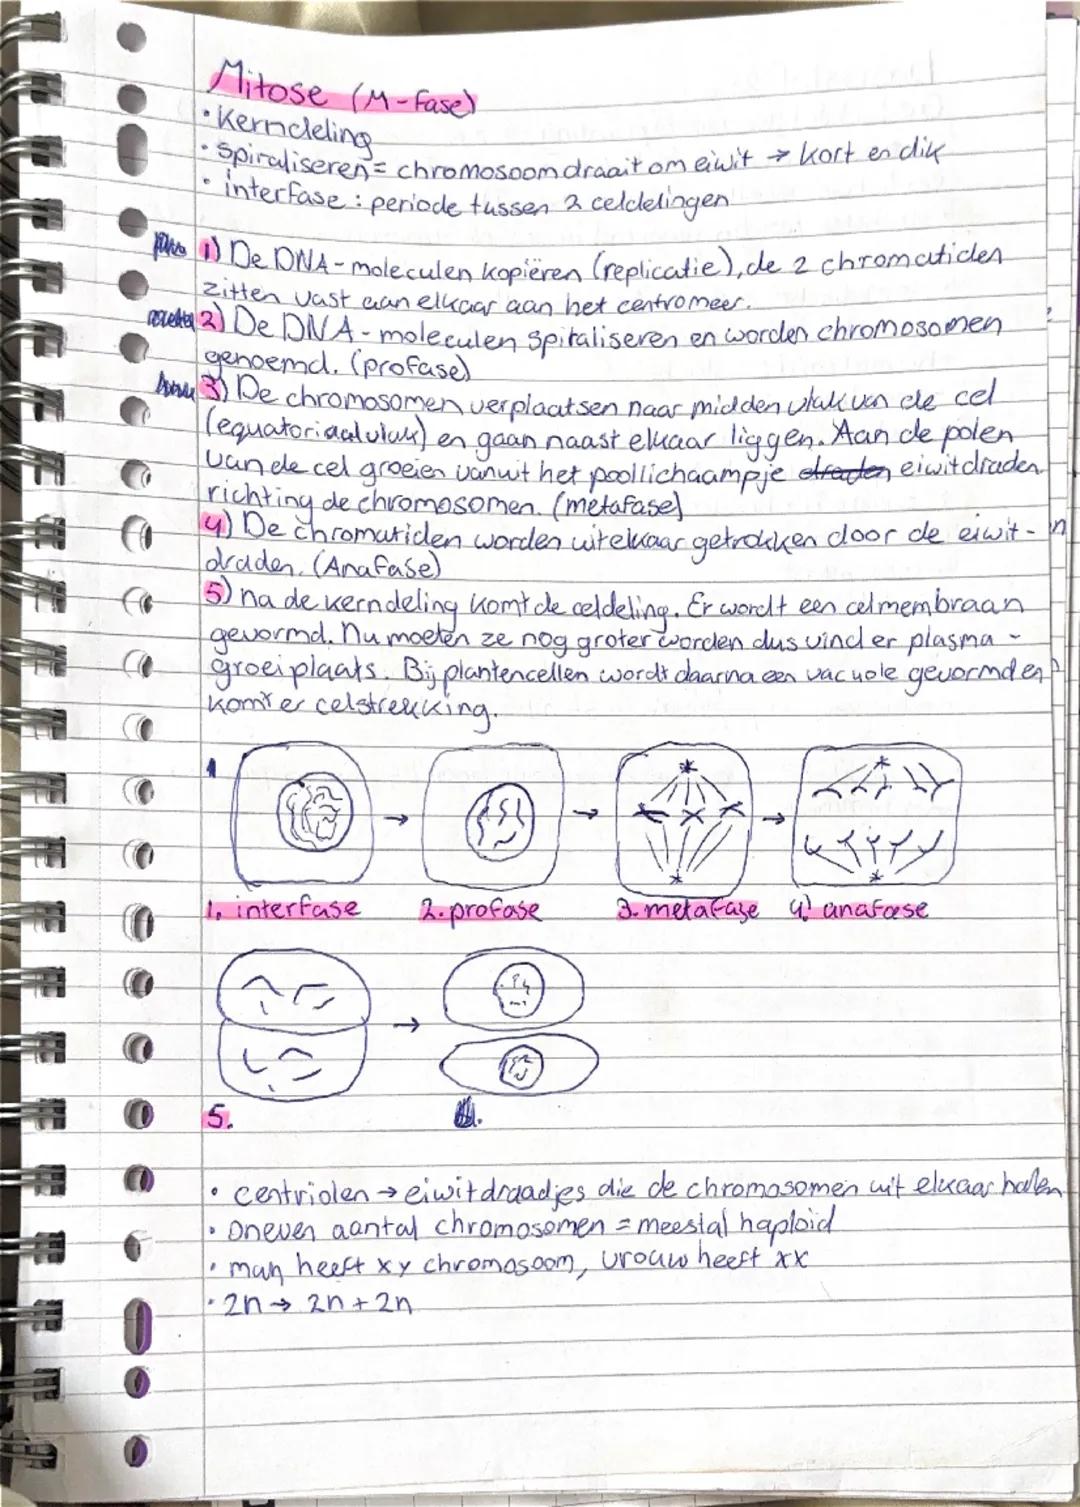 Mitose (M-fase)
• Kerndeling
• Spiraliseren = chromosoom draait om eiwit → kort en dik
• interfase : periode tussen 2 celdelingen
1) De DNA-moleculen kopiëren (replicatie), de 2 chromatiden
zitten vast aan elkaar aan het centromeer.
2) De DNA-moleculen spiraliseren en worden chromosomen
genoemd. (profase)
3) De chromosomen verplaatsen naar midden vlak van de cel
(equatoriaalvlak) en gaan naast elkaar liggen. Aan de polen
van de cel groeien vanuit het poollichaampje draden eiwitdraden
richting de chromosomen. (metafase)
4) De chromatiden worden uitelkaar getrokken door de eiwit-
draden. (Anafase)
5) na de kerndeling komt de celdeling. Er wordt een celmembraan
gevormd. Nu moeten ze nog groter worden dus vind er plasma-
groei plaats. Bij plantencellen wordt daarna een vacuole gevormd en
komt er celstrekking.
1. interfase 2. profase 3. metafaze 4) anafase
5.
• centriolen → eiwitdraadjes die de chromosomen uit elkaar halen
• oneven aantal chromosomen = meestal haploïd
• man heeft xy chromosoom, vrouw heeft xx
• 2n → 2n + 2n